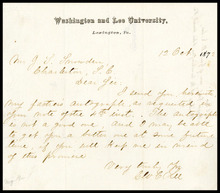 Washington and Lee University,
Lexington, Va.
12 Oct. 187
Charleston, S.C.
Dear Sir,
I send you herewith
my father's autograph as requested in
your note of the 4th inst. The autograph
is not a good one. And I may be able
to get you a better one at some future
time, if you will keep me in mind of
Very truly